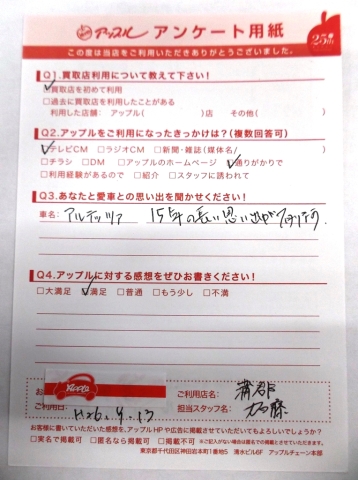 アップル アンケート用紙
25th
この度は当店をご利用いただきありがとうございました。
Q1.買取店利用について教えて下さい!
買取店を初めて利用
□過去に買取店を利用したことがある
利用した店舗: アップル( )店 その他( )
Q2.アップルをご利用になったきっかけは?(複数回答可)
テレビCM □ラジオCM □新聞・雑誌(媒体名/ )
□チラシ □DM □アップルのホームページ 通りがかりで
□利用経験があるので □紹介 □スタッフに誘われて
Q3.あなたと愛車との思い出を聞かせください!
車名: アルテッツァ 15年の長い思い出が
Q4.アップルに対する感想をぜひお書きください!
□大満足 満足 □普通 □もう少し □不満
お
アップル
ご利用店名: 蒲郡
ご利用日: H26.9.13
担当スタッフ名: 加藤
お客様に書いていただいた感想を、アップルHPや広告に掲載させていただいてもよろしいでしょうか?
□実名で掲載可 □匿名なら掲載可 □掲載不可 ※ご記入がない場合は匿名での掲載とさせていただきます。
東京都千代田区神田岩本町1番地5 清水ビル6F アップルチェーン本部